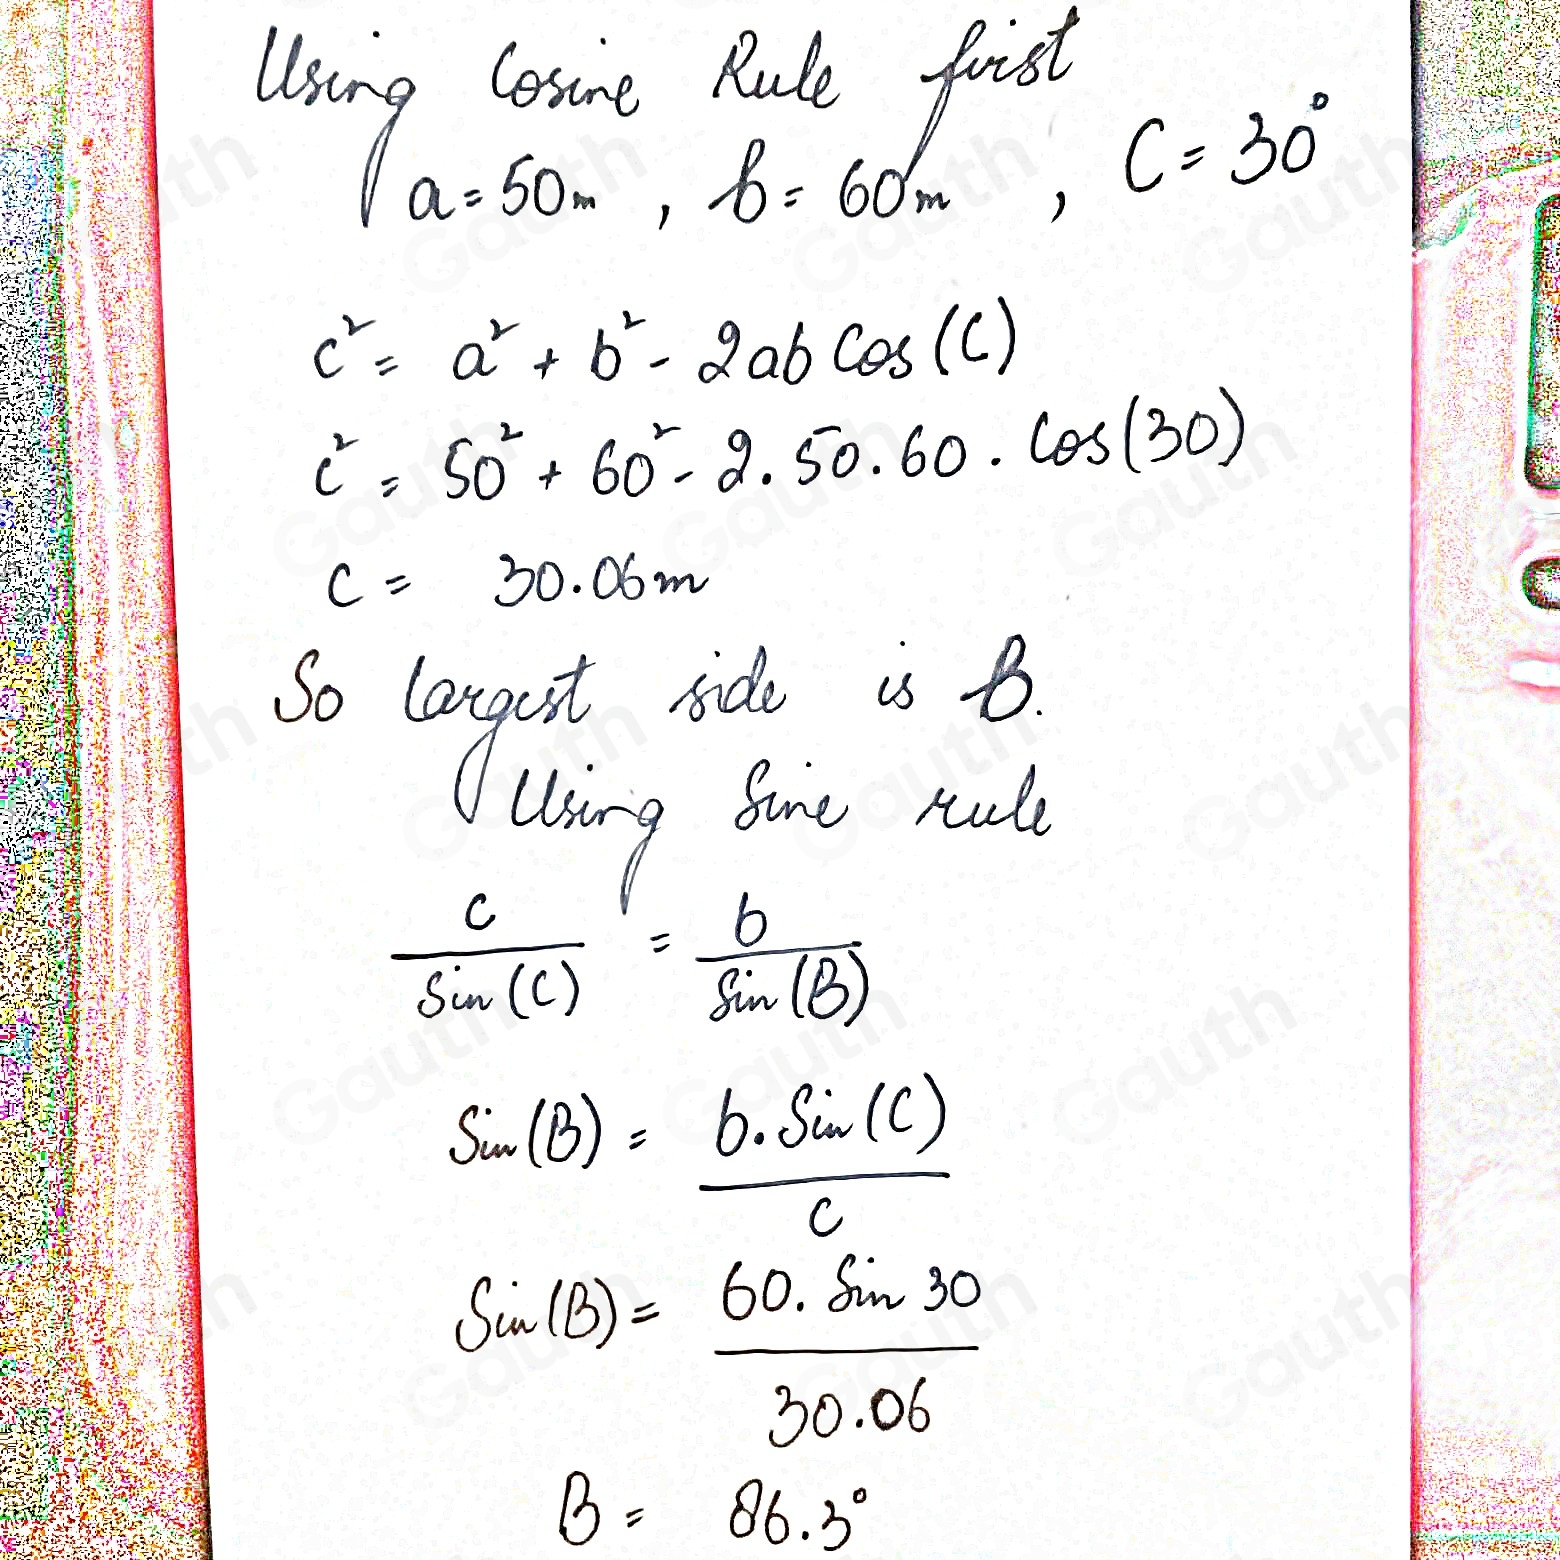 Using Cosine Rule first
a = 50m , b = 60m , C = 30°
c² = a² + b² - 2ab Cos (C)
c² = 50² + 60² - 2.50.60 . Cos(30)
c = 30.06m
So largest side is B.
Using Sine rule
c / Sin (C) = b / Sin (B)
Sin (B) = b. Sin (C) / c
Sin (B) = 60. Sin 30 / 30.06
B = 86.3°